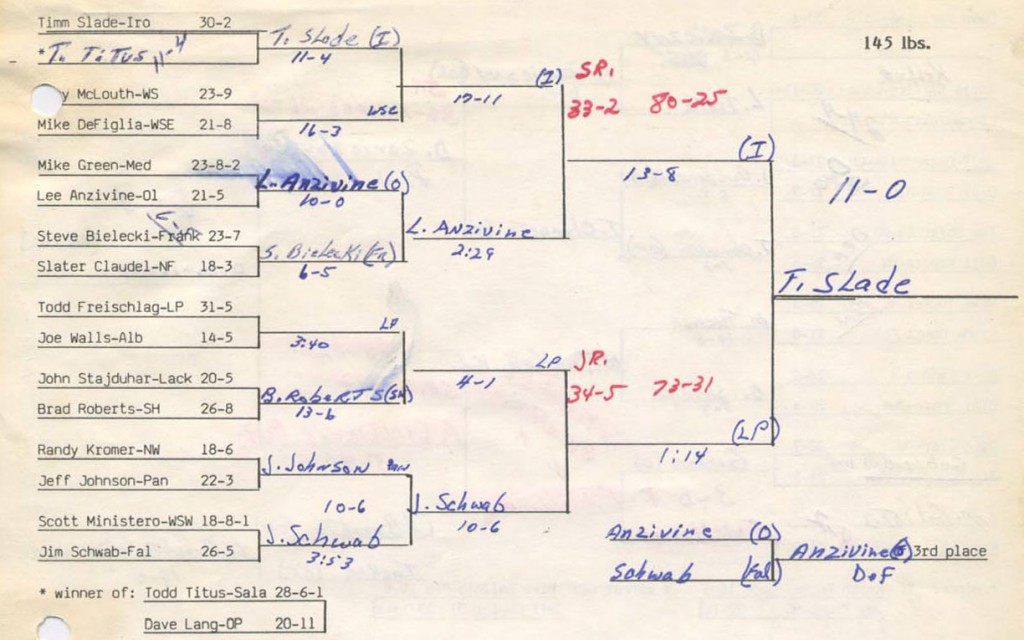 Timm Slade-Iro 30-2
*T. TiTUS 11-4
T. Slade (I)
11-4
145 lbs.
y McLouth-WS 23-9
Mike DeFiglia-WSE 21-8
WSE
16-3
(I)
17-11
SR.
33-2 80-25
Mike Green-Med 23-8-2
Lee Anzivine-Ol 21-5
L. Anzivine (O)
10-0
Steve Bielecki-Frank 23-7
Slater Claudel-NF 18-3
S. Bielecki (Fr)
6-5
L. Anzivine
2:29
(I)
13-8
11-0
T. Slade
Todd Freischlag-LP 31-5
Joe Walls-Alb 14-5
LP
3:40
John Stajduhar-Lack 20-5
Brad Roberts-SH 26-8
B. Roberts (SH)
13-6
LP
4-1
JR.
34-5 73-31
(LP)
1:14
Randy Kromer-NW 18-6
Jeff Johnson-Pan 22-3
J. Johnson Pan
10-6
Scott Ministero-WSW 18-8-1
Jim Schwab-Fal 26-5
J. Schwab
3:53
J. Schwab
10-6
Anzivine (O)
Schwab (Fal)
Anzivine (O) 3rd place
Def
* winner of: Todd Titus-Sala 28-6-1
Dave Lang-OP 20-11